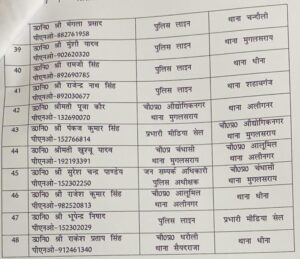 उ०नि० श्री मंगला प्रसाद
पीएनओ-882761958
पुलिस लाइन
थाना चन्दौली
39
उ०नि० श्री मुंशी यादव
पीएनओ-902620320
पुलिस लाइन
थाना मुगलसराय
40
उ०नि० श्री रामजी सिंह
पीएनओ-892690785
पुलिस लाइन
थाना धीना
41
उ०नि० श्री राजेन्द्र नाथ सिंह
पीएनओ-892030677
पुलिस लाइन
थाना शहाबगंज
42
उ०नि० श्रीमती पूजा कौर
पीएनओ-132690070
चौ०प्र० औद्योगिकनगर
थाना मुगलसराय
थाना अलीनगर
43
उ०नि० श्री पंकज कुमार सिंह
पीएनओ-152766814
प्रभारी मीडिया सेल
चौ०प्र० औद्योगिकनगर
थाना मुगलसराय
44
उ०नि० श्रीमती खुश्बू यादव
पीएनओ-192193391
चौ०प्र० चंधासी
थाना मुगलसराय
चौ०प्र० आलूमिल
थाना अलीनगर
45
उ०नि० श्री सुरेश चन्द पाण्डेय
पीएनओ-152302250
जन सम्पर्क अधिकारी
पुलिस अधीक्षक
चौ०प्र० चंधासी
थाना मुगलसराय
46
उ०नि० श्री राजेश कुमार सिंह
पीएनओ-982520813
चौ०प्र० आलूमिल
थाना अलीनगर
थाना धीना
47
उ०नि० श्री भूपेन्द्र निषाद
पीएनओ-152302029
पुलिस लाइन
प्रभारी मीडिया सेल
48
उ०नि० श्री राकेश प्रताप सिंह
पीएनओ-912461340
चौ०प्र० धरौली
थाना सैयदराजा
थाना धीना